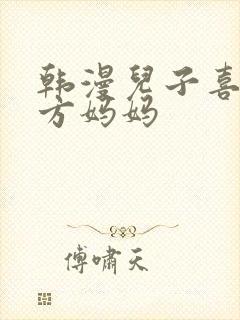 韩漫兒子喜
方妈妈
傅啸天